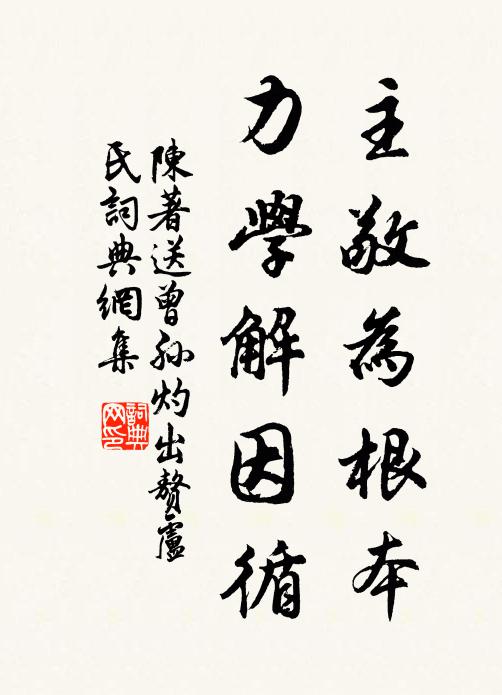 主敬為根本
力學解因循
陳著送曾孙灼出贅盧
氏詞典網集
詞典
网印